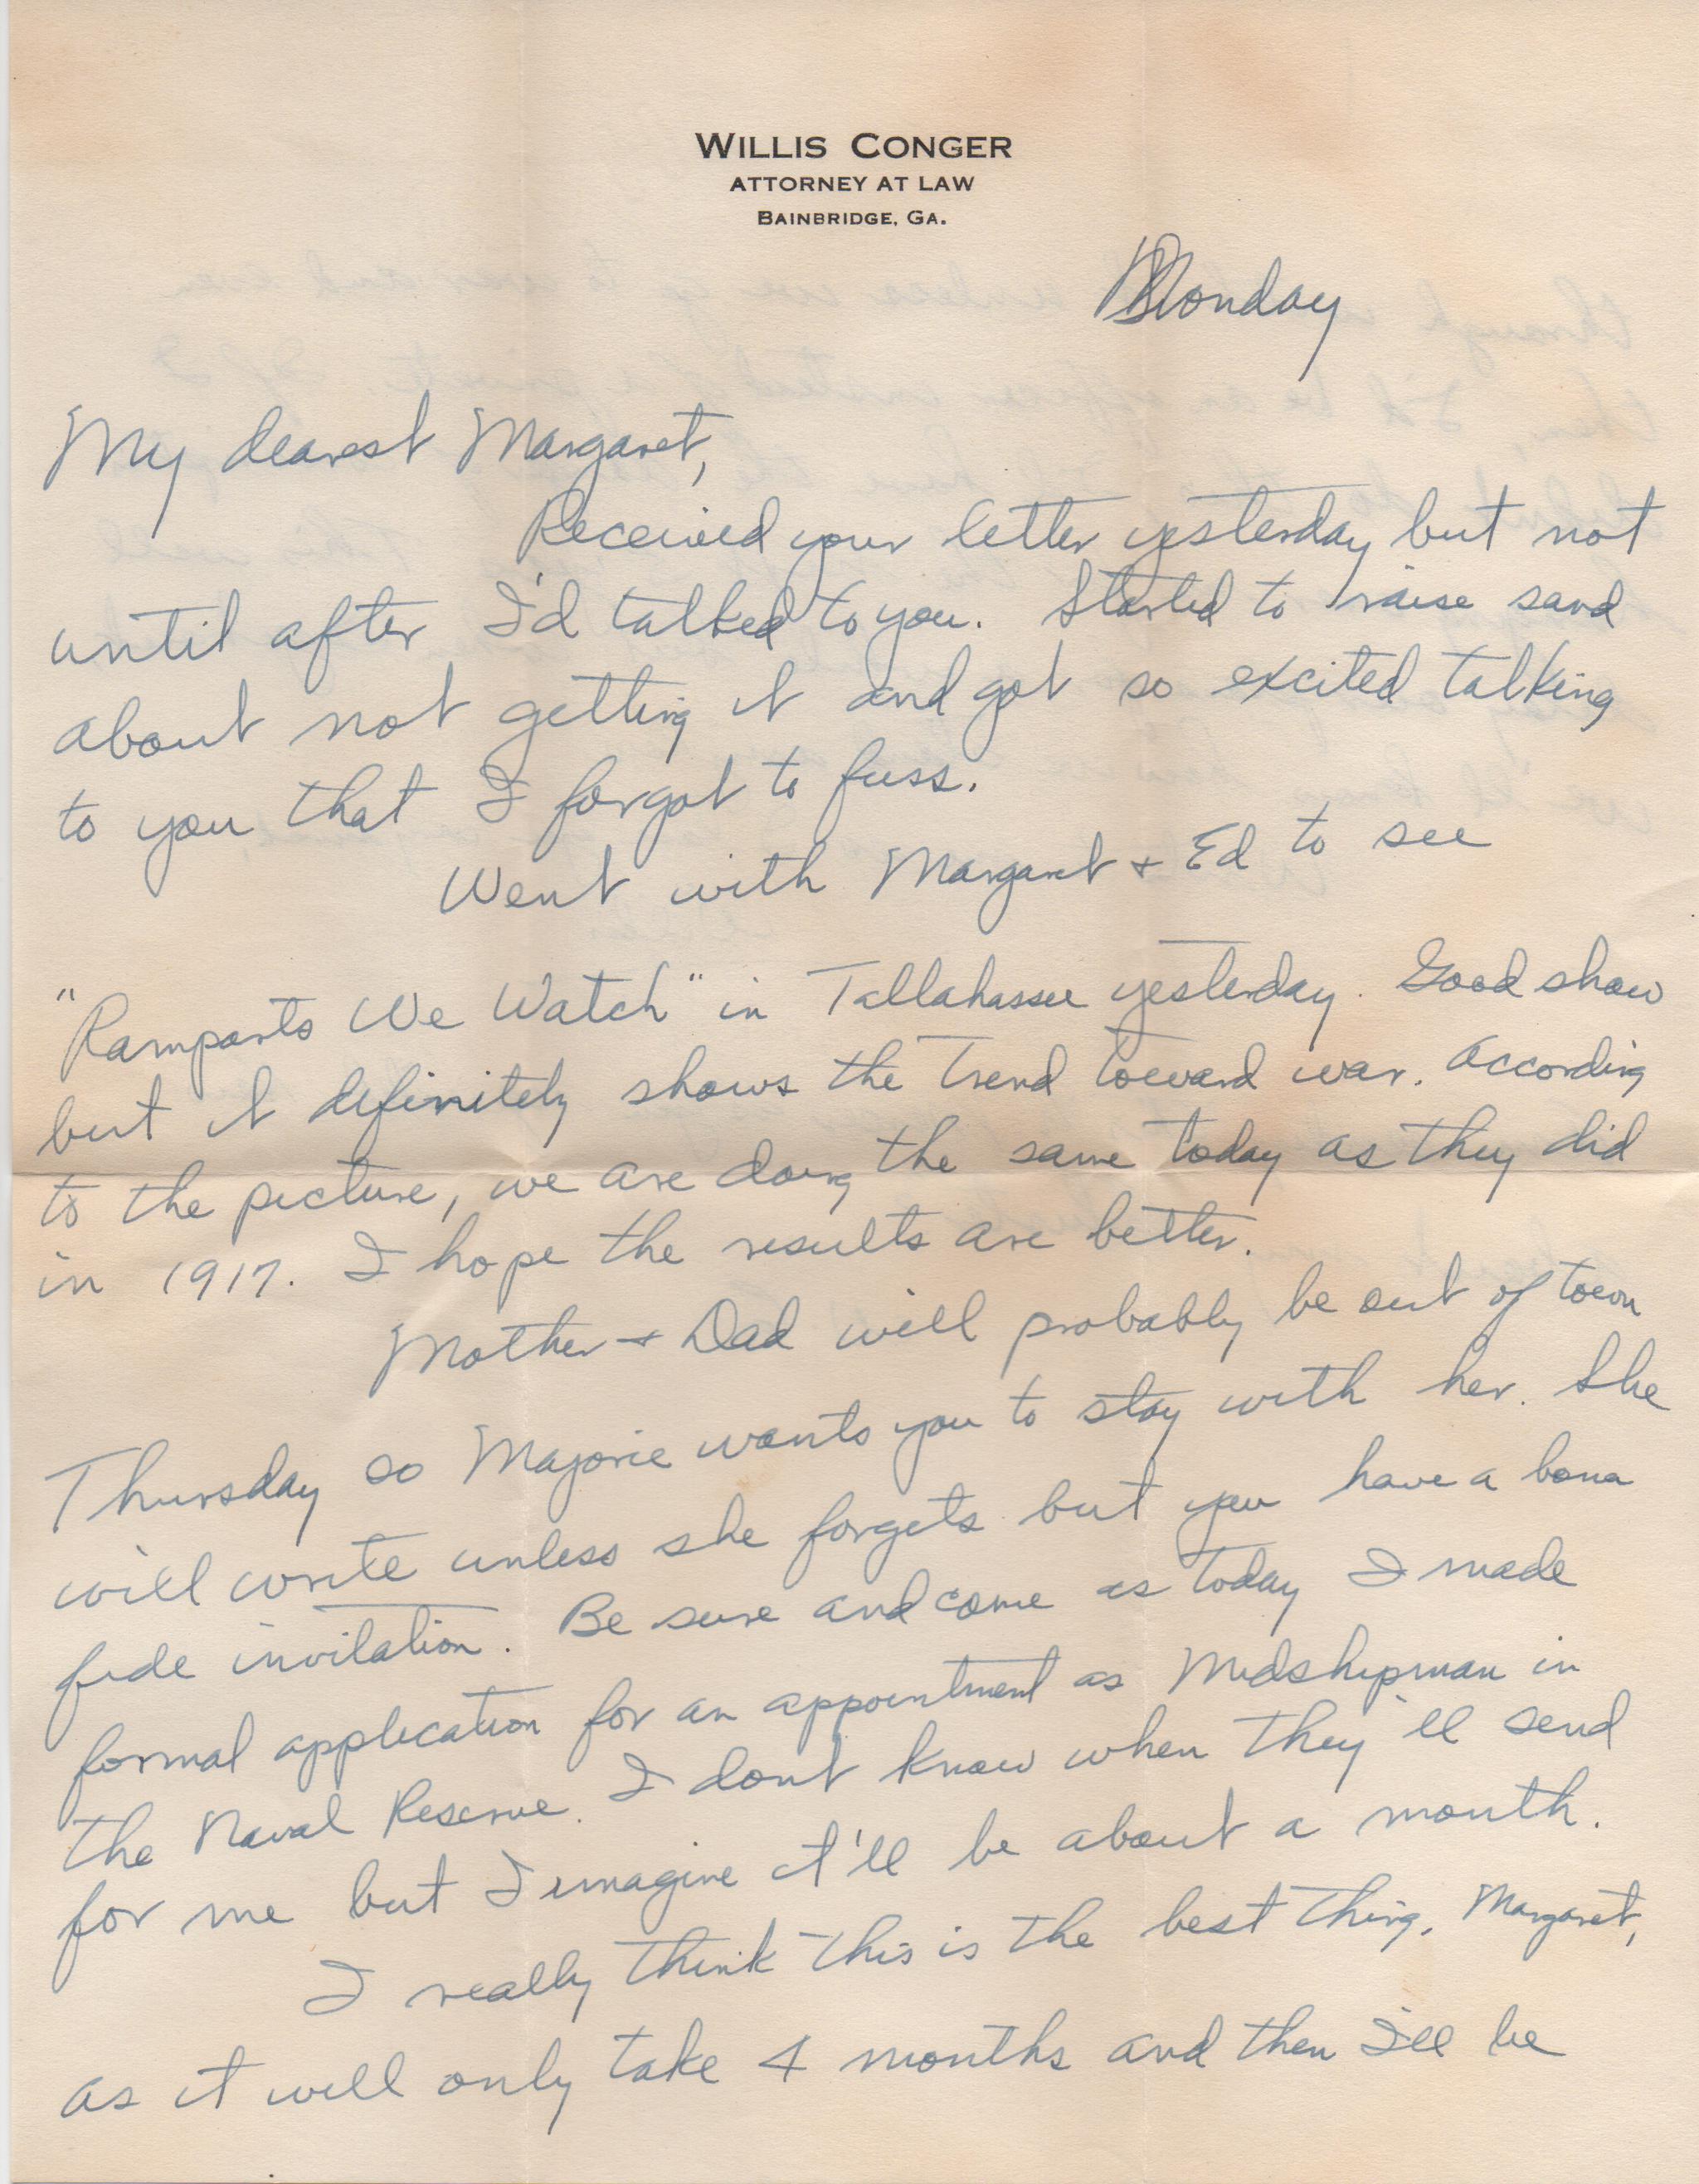 WILLIS CONGER
ATTORNEY AT LAW
BAINBRIDGE, GA.
Monday
My dearest Margaret,
Received your letter yesterday but not
until after I'd talked to you. Started to raise sand
about not getting it and got so excited talking
to you that I forgot to fuss.
Went with Margaret + Ed to see
"Ramparts We Watch" in Tallahassee yesterday. Good show
but it definitely shows the trend toward war. According
to the picture, we are doing the same today as they did
in 1917. I hope the results are better.
Mother + Dad will probably be out of town
Thursday so Majorie wants you to stay with her. She
will write unless she forgets but you have a bona
fide invitation. Be sure and come as today I made
formal application for an appointment as Midshipman in
the Naval Reserve. I dont know when they'll send
for me but I imagine it'll be about a month.
I really think this is the best thing, Margaret,
as it will only take 4 months and then I'll be